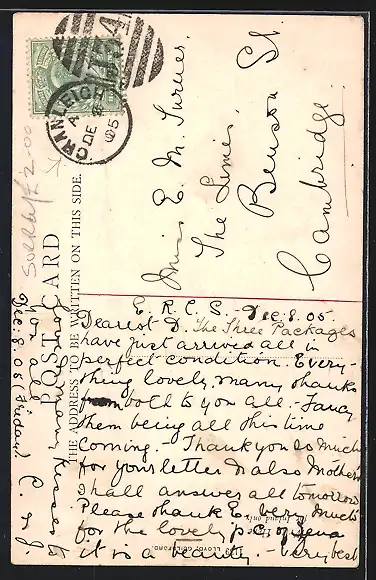 CRANLEIGH
DE
05
POST CARD
THE ADDRESS TO BE WRITTEN ON THIS SIDE.
Miss E. M. Turner.
The Limes,
Benson St
Cambridge.
E. R. C. S. Dec. 8. 05.
Dearest D. The Three Packages
have just arrived all in
perfect condition. Every-
thing lovely, many thanks
from both to you all. Fancy
them being all this time
coming. Thank you so much
for your letter & also Mother's
shall answer all tomorrow
Please thank E. very much
for the lovely p.c. of
it is a beauty. Very best
love & many kisses to
you all
Dec: 8. 05 (Friday)
LLOYD, GUILDFORD